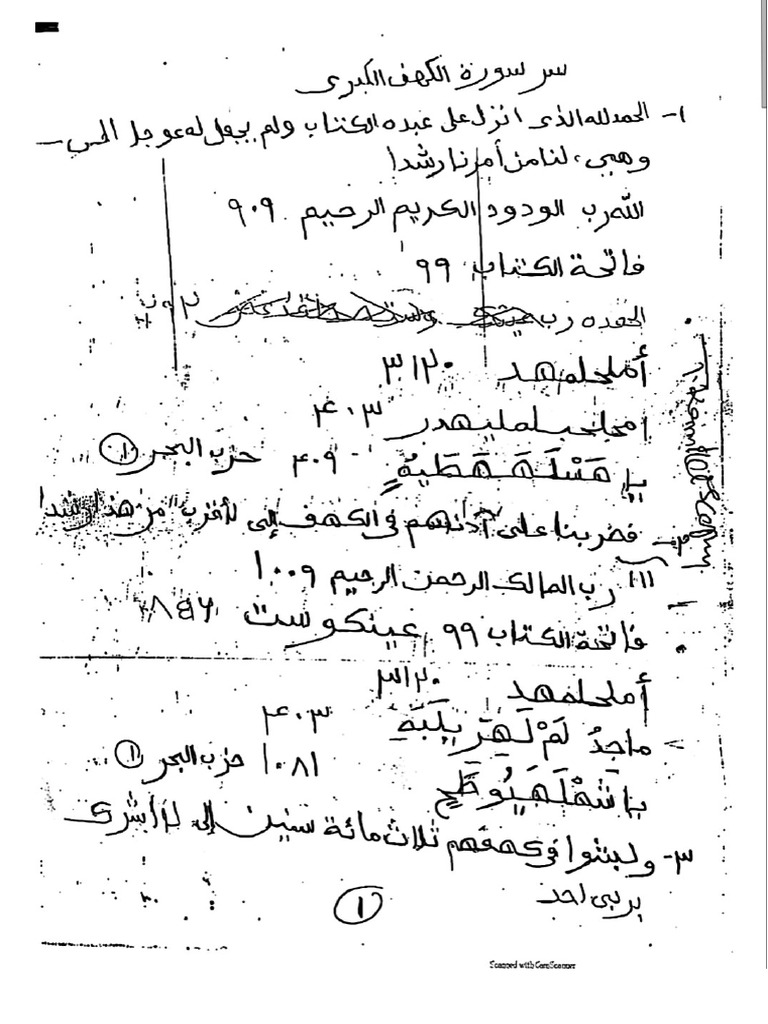 سر سورة الكهف الكبرى
١- الحمد لله الذى انزل على عبده الكتاب ولم يجعل له عوجا الى
وهيىء لنا من أمرنا رشدا
الله رب الودود الكريم الرحيم ٩٠٩
فاتحة الكتاب ٩٩
أملحلمهد ٣١٢٠
٤٠٣
يا هَسْلَهَ هَطَيهُ ٤٠٩ حزب البحر ١
فضربنا على آذنهم فى الكهف إلى لأقرب من هذا رشدا
الله رب المالك الرحمن الرحيم ١٠٠٩
فاتحة الكتاب ٩٩ عينكوست ٨٤٦
أملحلمهد ٣١٢٠
ماجدُ لَمْ لَهَرَ بِلَبَةِ ٤٠٣
١٠٨١ حزب البحر ١
٣- ولبثوا فى كهفهم ثلاث مائة سنين إلى لا أشرك
بربى احد
١
Scanned with CamScanner